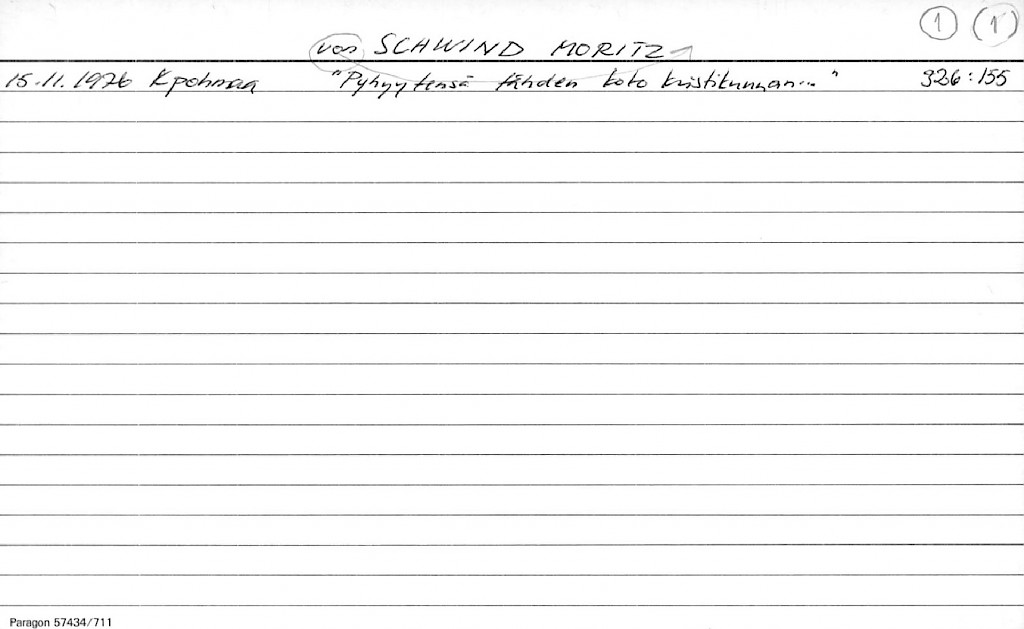 1 (1)
von SCHWIND MORITZ
15.11.1976 Kpohmaa "Pyhyytensä tähden koko kristikunnan..." 326:155
Paragon 57434/711